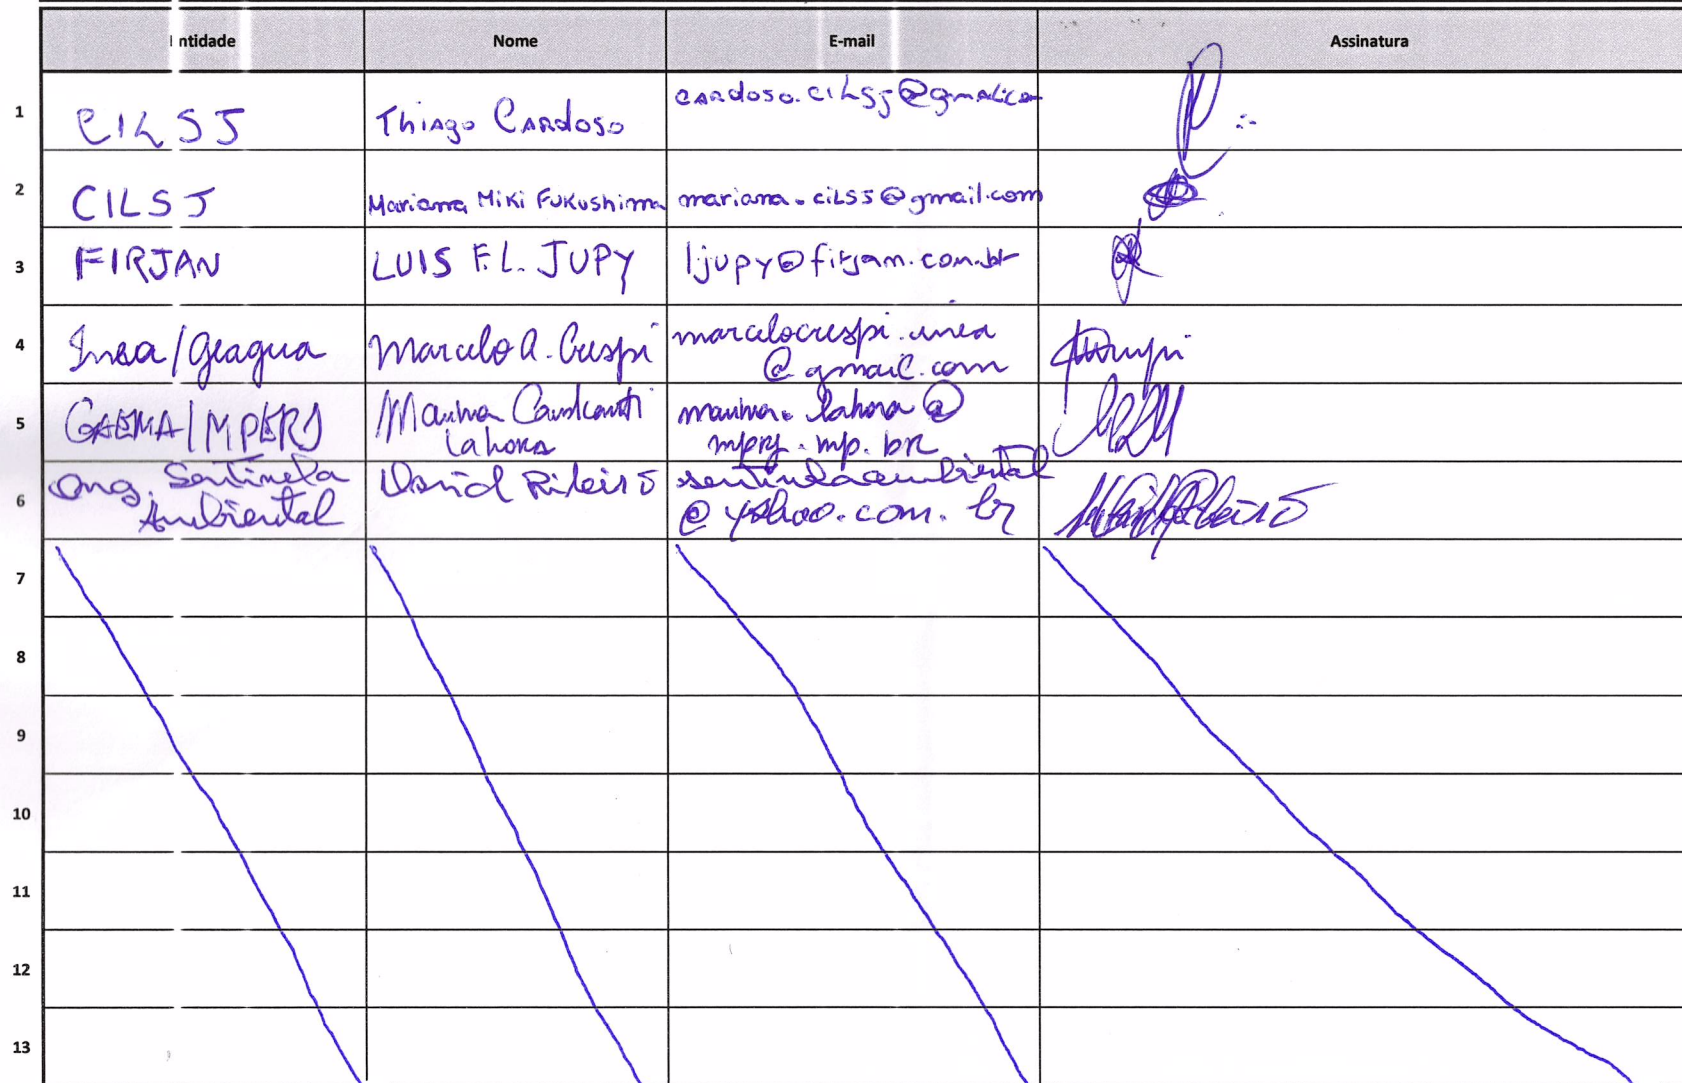 Entidade Nome E-mail Assinatura
1 CILSJ Thiago Cardoso cardoso.cilsj@gmail.com
2 CILSJ Mariana Miki Fukushima mariana.cilsj@gmail.com
3 FIRJAN LUIS F.L. JUPY ljupy@firjan.com.br
4 Inea/Geagua Marcelo A. Crespi marcelocrespi.inea
@gmail.com
5 GAEMA/MPERJ Marina Cavalcanti
Lahora
marina.lahora@
mprj.mp.br
6 Ong. Sentinela
Ambiental
David Ribeiro sentinelaambiental
@yahoo.com.br
7
8
9
10
11
12
13